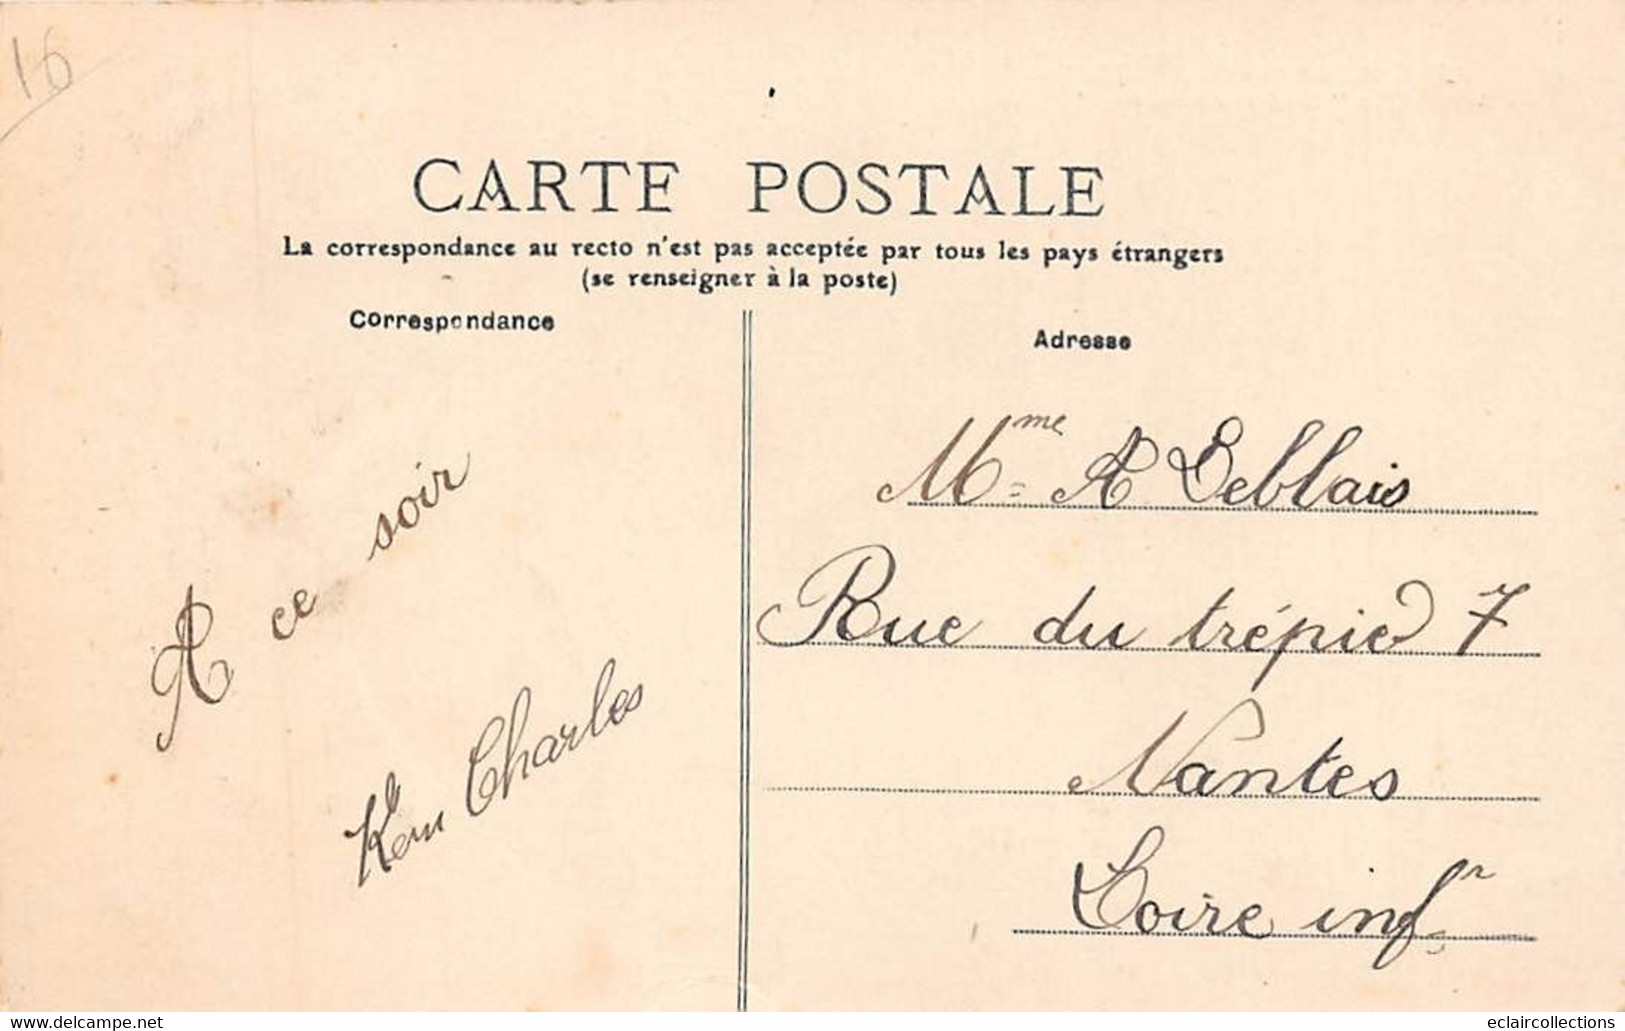 16
CARTE POSTALE
La correspondance au recto n'est pas acceptée par tous les pays étrangers
(se renseigner à la poste)
Correspondance
Adresse
A ce soir
Charles
Mme A Deblais
Rue du trépied 7
Nantes
Loire infr
www.delcampe.net
eclaircollections